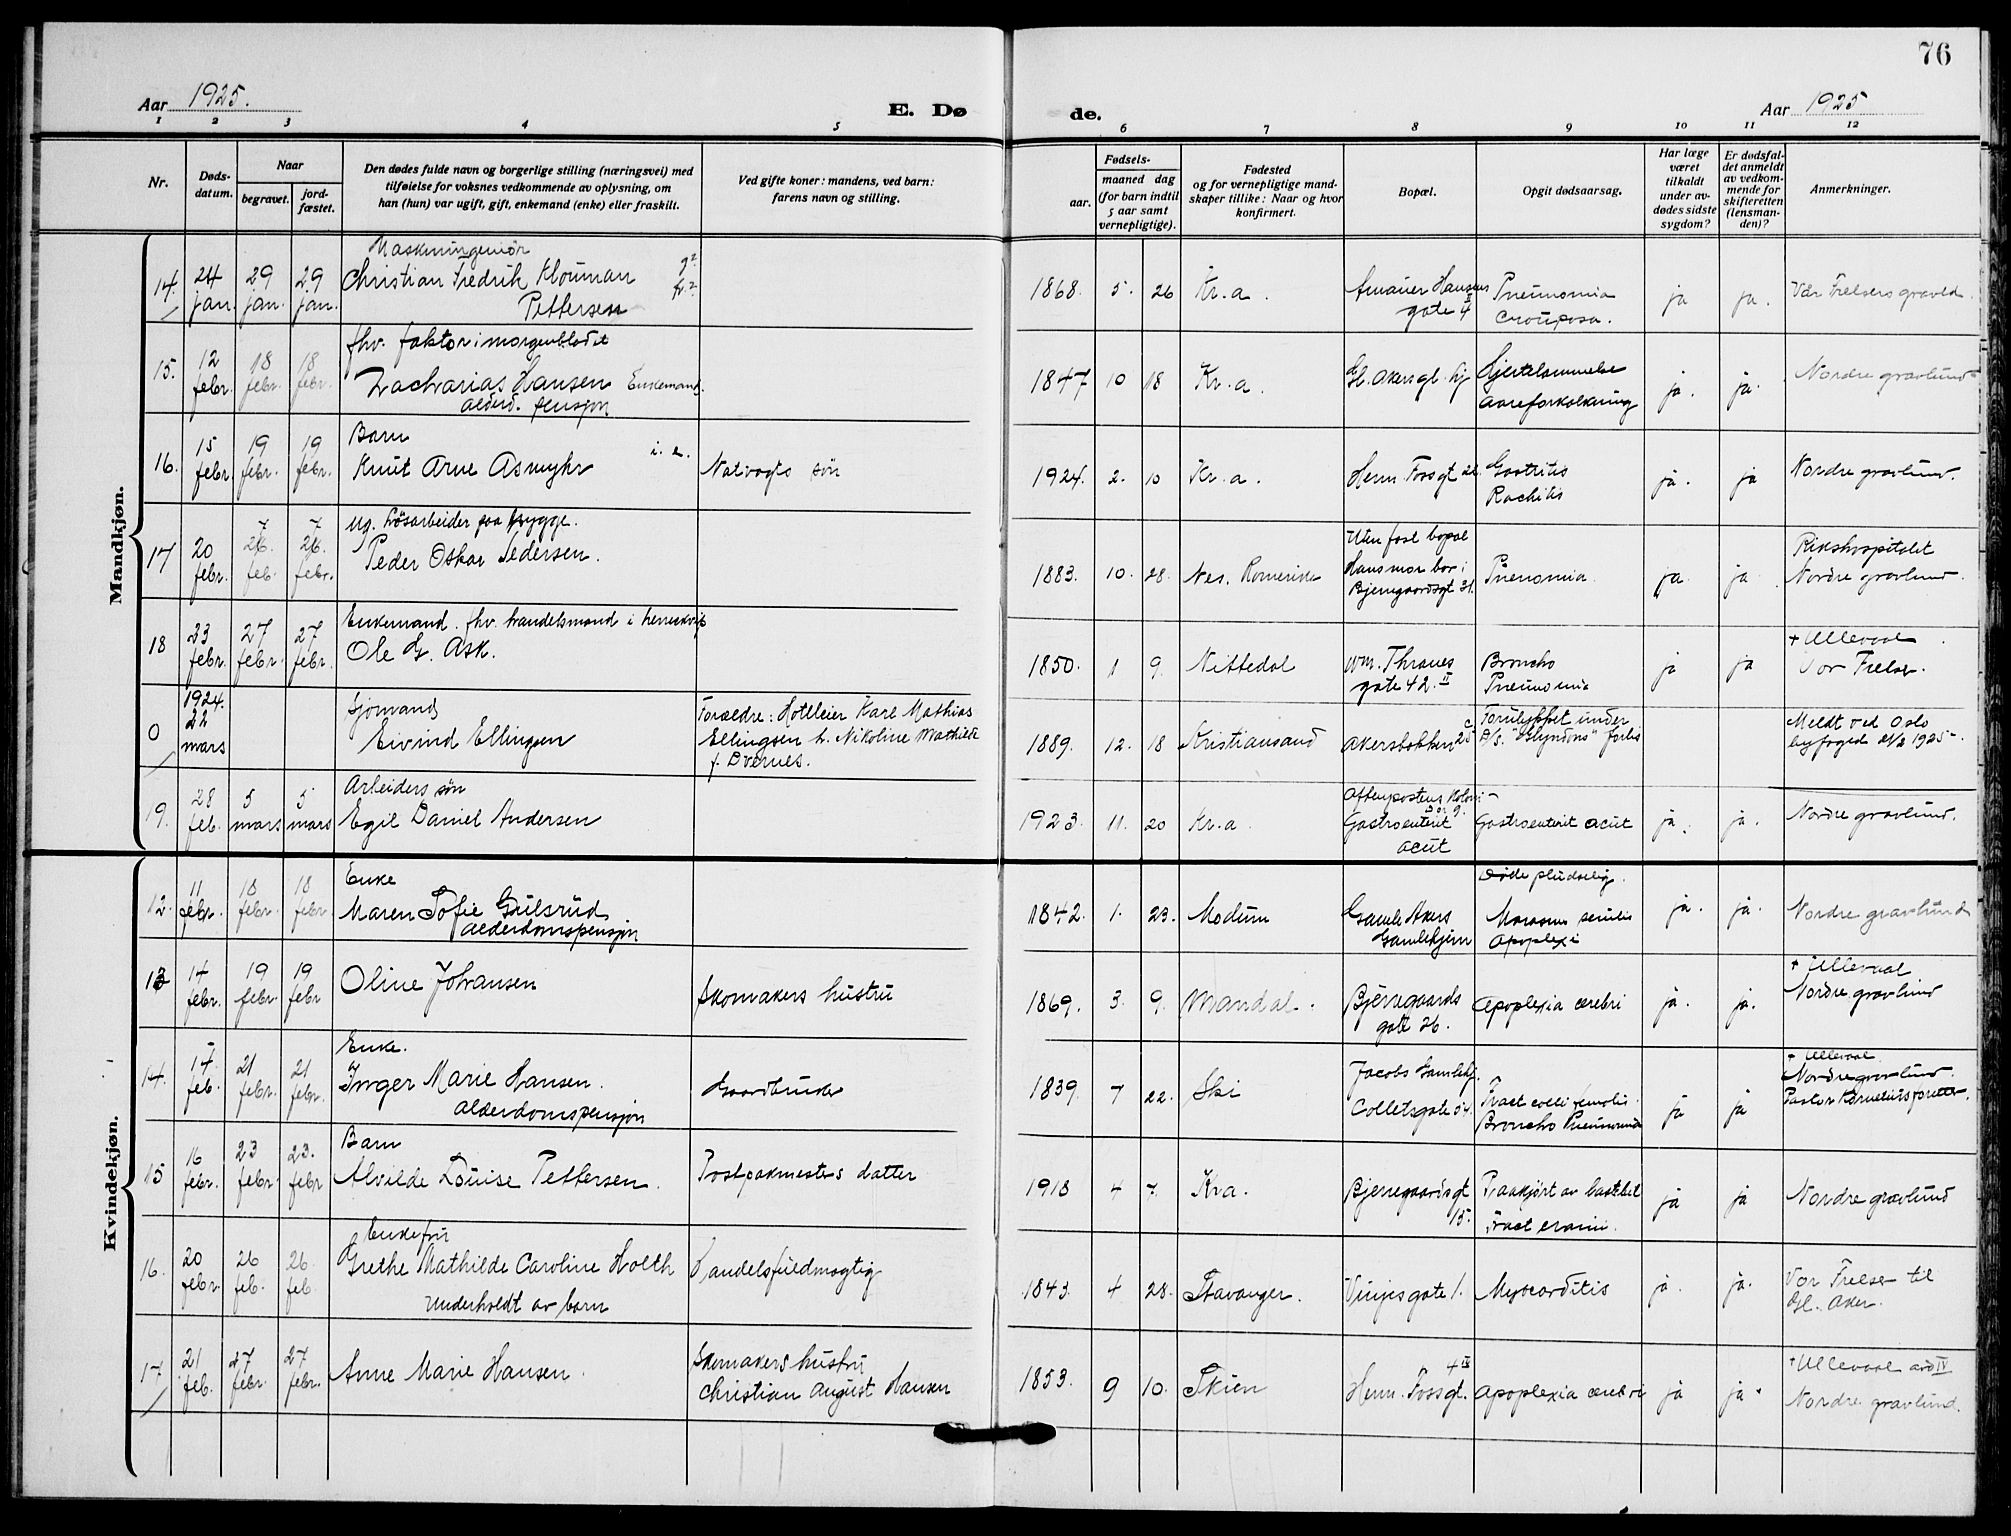 76
Aar 1925.
E. Dø
de.
Aar 1925
1 2 3 4 5 6 7 8 9 10 11 12
Nr.
Døds-
datum.
Naar
begravet.
jord-
fæstet.
Den dødes fulde navn og borgerlige stilling (næringsvei) med
tilføielse for voksnes vedkommende av oplysning, om
han (hun) var ugift, gift, enkemand (enke) eller fraskilt.
Ved gifte koner: mandens, ved barn:
farens navn og stilling.
Fødsels-
aar.
maaned dag
(for barn indtil
5 aar samt
vernepligtige).
Fødested
og for vernepligtige mand-
skaper tillike: Naar og hvor
konfirmert.
Bopæl.
Opgit dødsaarsag.
Har læge
været
tilkaldt
under av-
dødes sidste
sygdom?
Er dødsfal-
det anmeldt
av vedkom-
mende for
skifteretten
(lensman-
den)?
Anmerkninger.
Mandkjøn.
14. 24 jan. 29 jan. 29 jan.
Maskiningeniør
Christian Fredrik Klouman
Pettersen
1868. 5. 26 Kr.a.
Amauer Hansens
gate 4 II
Pneumonia
crouposa.
ja ja.
Vår Frelsers gravld.
15. 12 febr. 18 febr. 18 febr.
fhv. faktor i morgenbladet
Zacharias Hansen Enkemand.
alderd. pensjon
1847 10 18 Kr.a.
Gl. Akersgt. hj
Hjertelammelse
aareforkalkning
ja. ja.
Nordre gravlund
16. 15 febr. 19 febr. 19 febr.
Barn
Knut Arne Asmyhr
Natvagts søn
1924. 2. 10 Kr.a.
Herm. Fossgt 22.
Gastritis
Rachitis
ja. ja
Nordre gravlund.
17 20 febr. 26 feb. 26 febr. 7 7
ug. Løsarbeider paa brygge.
Peder Oskar Pedersen.
1883. 10. 28. Nes. Romerike
Uten fast bopæl
Hans mor bor i
Bjerregaardsgt 31.
Pneumonia.
ja ja
Rikshospitalet
Nordre gravlund.
18 23 febr. 27 febr. 27 febr.
Enkemand. fhv. handelsmand i
Ole G. Ask.
1850. 1 9. Nittedal
Wm. Thranes
gate 42. II
Broncho
Pneumonia
ja ja
+ Ullevaal
Vor Frelser.
0 1924. 22 mars
Sjømand
Eivind Ellingsen
Forældre: Hotelleier Karl Mathias
Ellingsen h. Nikoline Mathilde
f. Dvernes.
1889. 12. 18 Kristiansand
Akersbakken 25 c
Forulykket under
D/S. forlis
Meldt ved Oslo
byfoged 21/2 1925.
19. 28 feb. 5 mars 5 mars
Arbeiders søn
Egil Daniel Andersen
1923. 11. 20 Kr.a.
Aftenpostens Koloni
Gastroenterit
acut
Gastroenterit acut
ja. ja.
Nordre gravlund.
Kvindekjøn.
12. 11 febr. 18 febr. 18 febr.
Enke
Maren Sofie Gulsrud
alderdomspensjon
1842. 1. 23. Modum
Gamle Akers
Gamlehjem
Døde pludselig.
Marasmus senilis
Apoplexi
ja. ja.
Nordre gravlund
13 14 febr. 19 febr. 19 febr
Oline Johansen
Skomakers hustru
1869. 3. 9. Mandal.
Bjerregaards
gate 26.
Apoplexia cerebri
ja. ja.
+ Ullevaal
Nordre gravlund
14. 14 feb. 21 febr. 21 febr.
Enke.
Inger Marie Hansen.
alderdomspensjon
Gaardbruker
1839. 7 22. Ski
Jacobs Gamlehj.
Colletsgate 54.
Fract colli femoris.
Broncho Pneumonia
ja ja
+ Ullevaal
Nordre gravlund.
Pastor Kornelius forretter.
15 16 febr. 23 febr. 23. febr
Barn
Alvilde Louise Pettersen.
Postpakmesters datter
1918 4 7. Kr.a.
Bjerregaardsgt
15.
Paakjørt av lastebil
Fract cranii.
ja ja
Nordre gravlund
16. 20 febr 26 feb. 26. feb
Enkefru
Grethe Mathilde Caroline Holth
Underholdt av barn
Handelsfuldmægtig
1843. 4 28. Stavanger.
Vinjes gate 1.
Myocarditis
ja. ja.
Vor Frelser til
Gl. Aker.
17 21 feb. 27 febr. 27 febr.
Anne Marie Hansen.
Skomakers hustru
Christian August Hansen
1853. 9 10. Skien
Herm. Fossgt. 4 IV
Apoplexia cerebri
ja ja.
+ Ullevaal avd IV
Nordre gravlund.